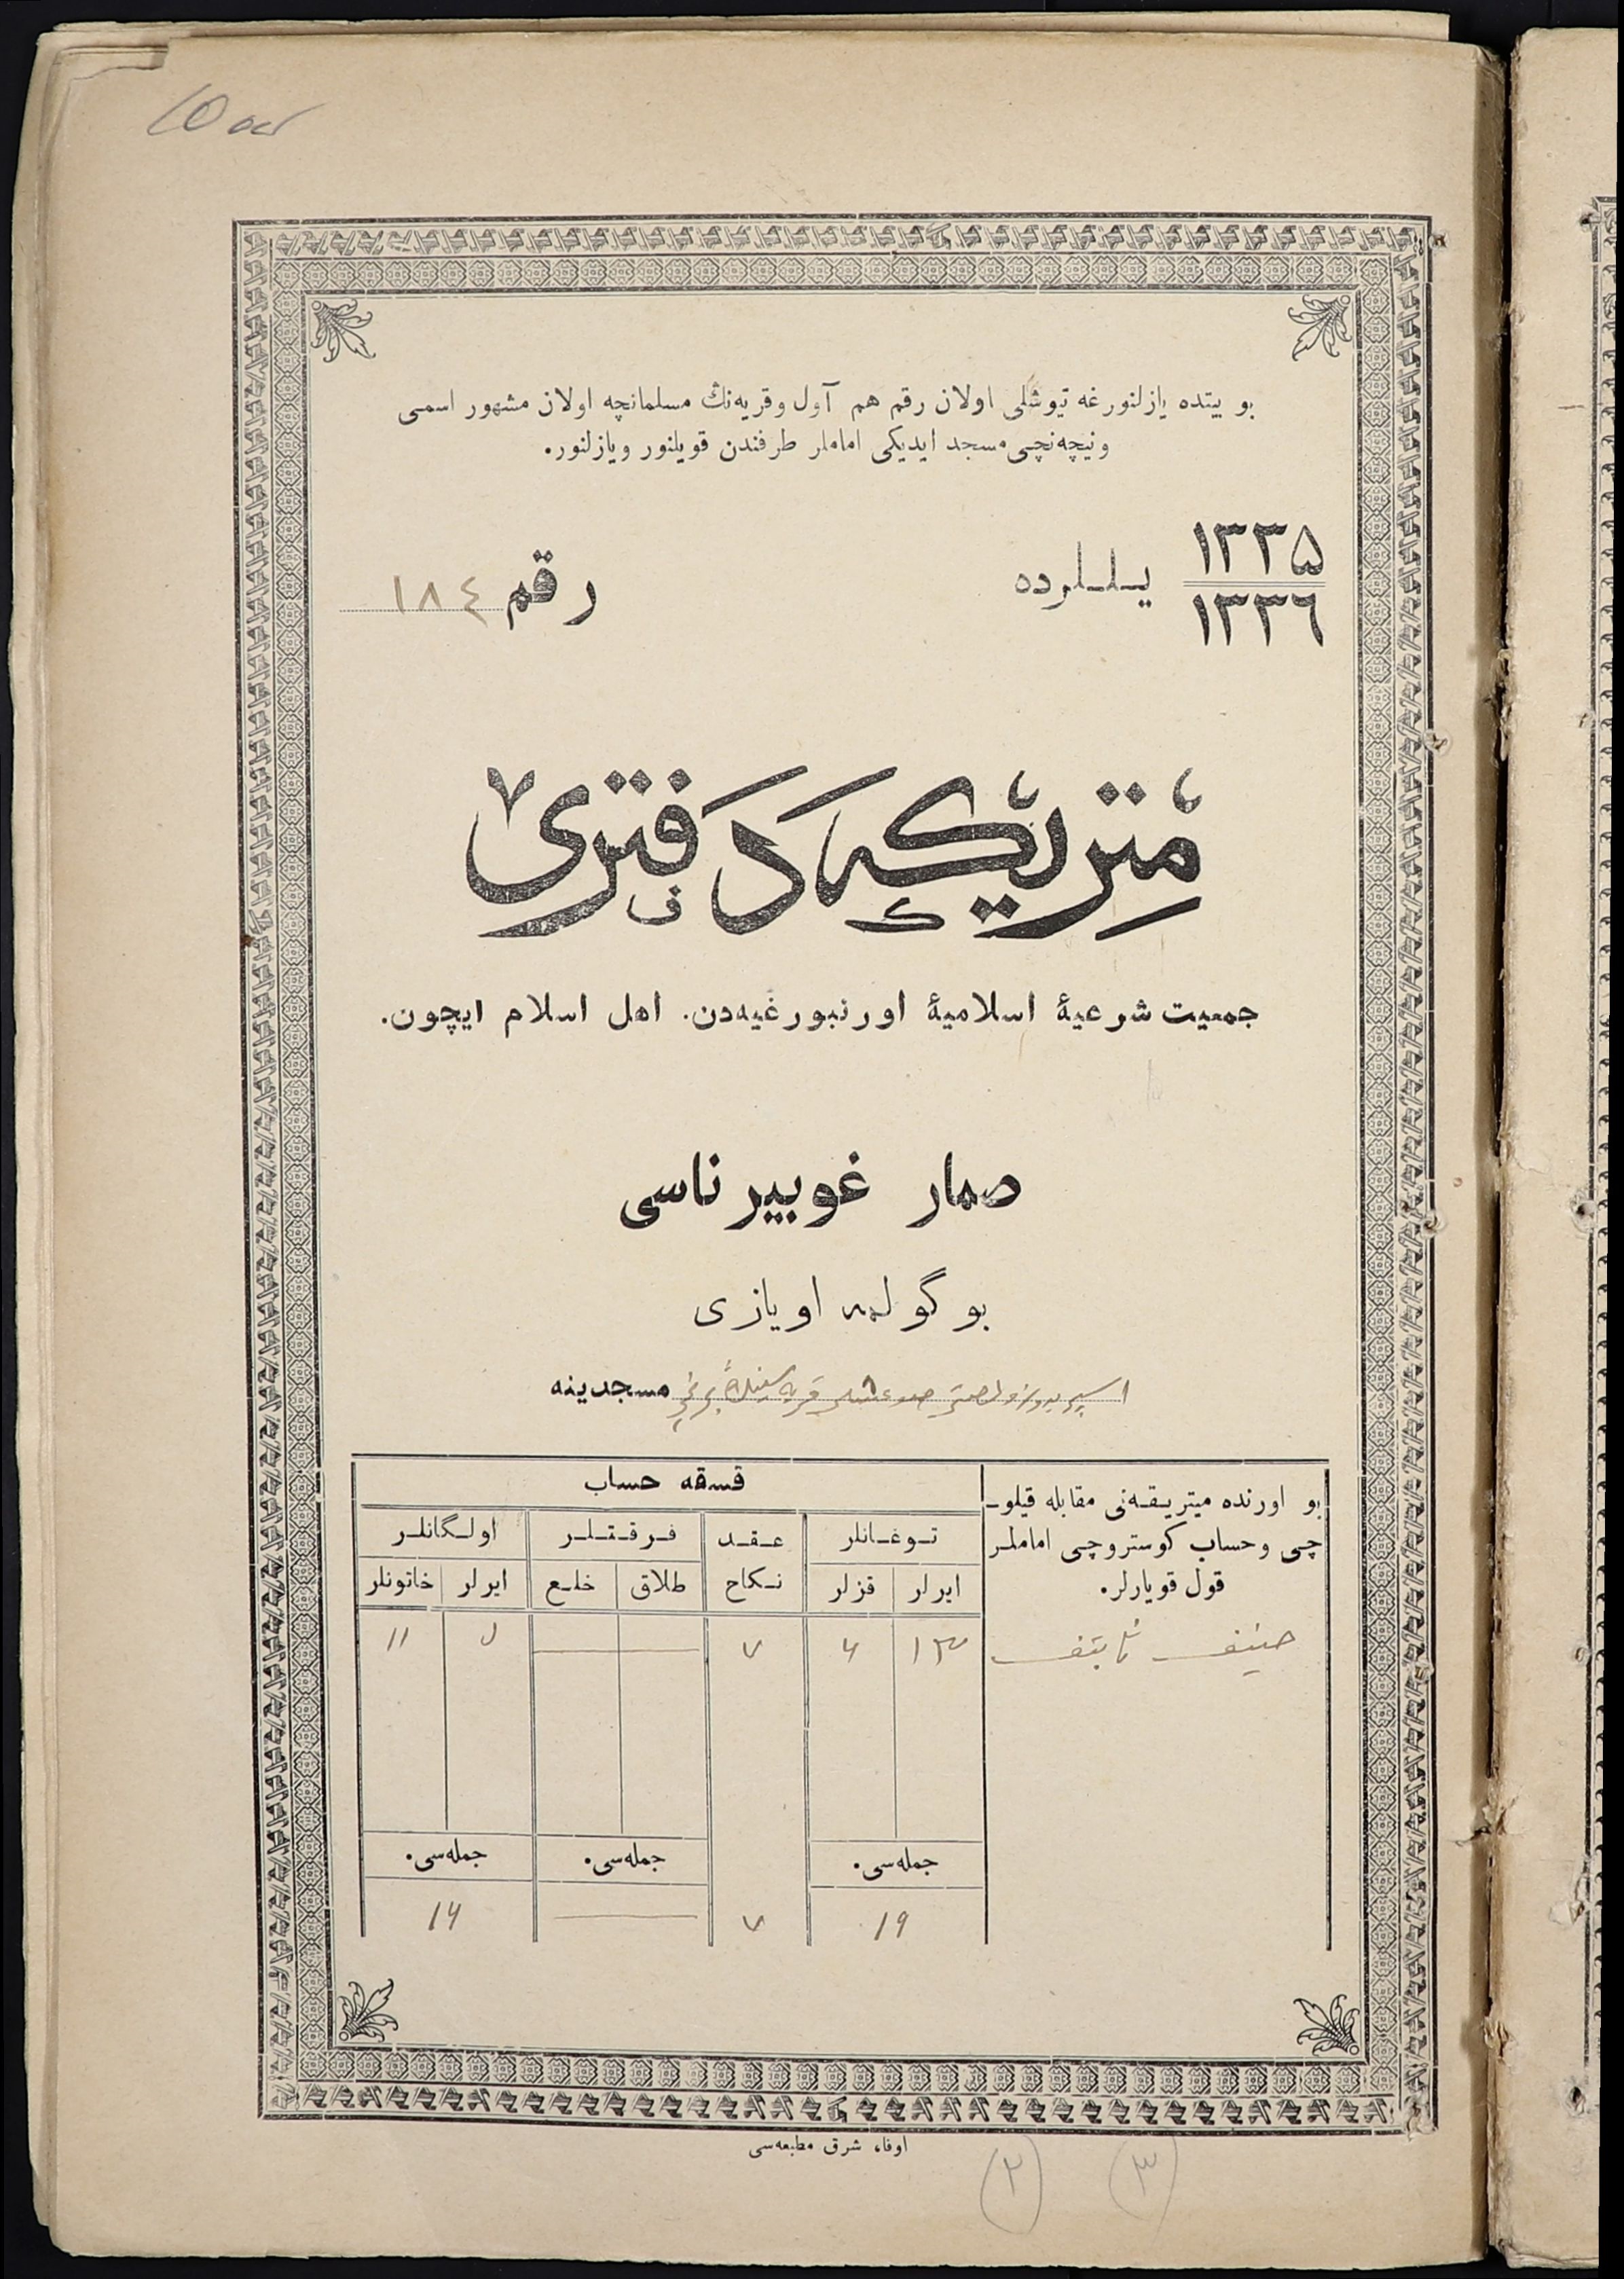 بو بيتده يازلنورغه تيوشلى اولان رقم هم آول وقريه‌نڭ مسلمانچه اولان مشهور اسمى
ونيچه‌نچى مسجد ايديكى اماملر طرفندن قويلنور ويازلنور.
١٣٣٥
١٣٣٦
يللرده
رقم ١٨٤
متريكه دفترى
جمعيت شرعيۀ اسلاميۀ اورنبورغيه‌دن. اهل اسلام ايچون.
صمار غوبيرناسى
بوگولمه اويازى
قريه سينڭ برنچى مسجدينه
بو اورنده ميتريقه‌نى مقابله قيلو-
چى وحساب كوستروچى اماملر
قول قويارلر.
قسقه حساب
توغانلر عقد فرقتلر اولگانلر
ايرلر قزلر نكاح طلاق خلع ايرلر خاتونلر
حنيف ثابتف
١٣ ٦ ٧ ١١
جمله‌سى. جمله‌سى. جمله‌سى.
١٩ ٧ ١٦
اوفا، شرق مطبعه‌سى
٣ ٢